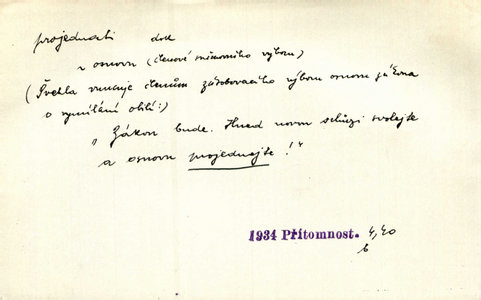 projednati dok
~ osnovu (členové měnového výboru)
(Švehla vracuje členům zásobovacího výboru osnovu zákona
o vymílání obilí:)
„Zákon bude. Hned novou schůzi svolejte
a osnovu projednejte!"
1934 Přítomnost. 4,40
b